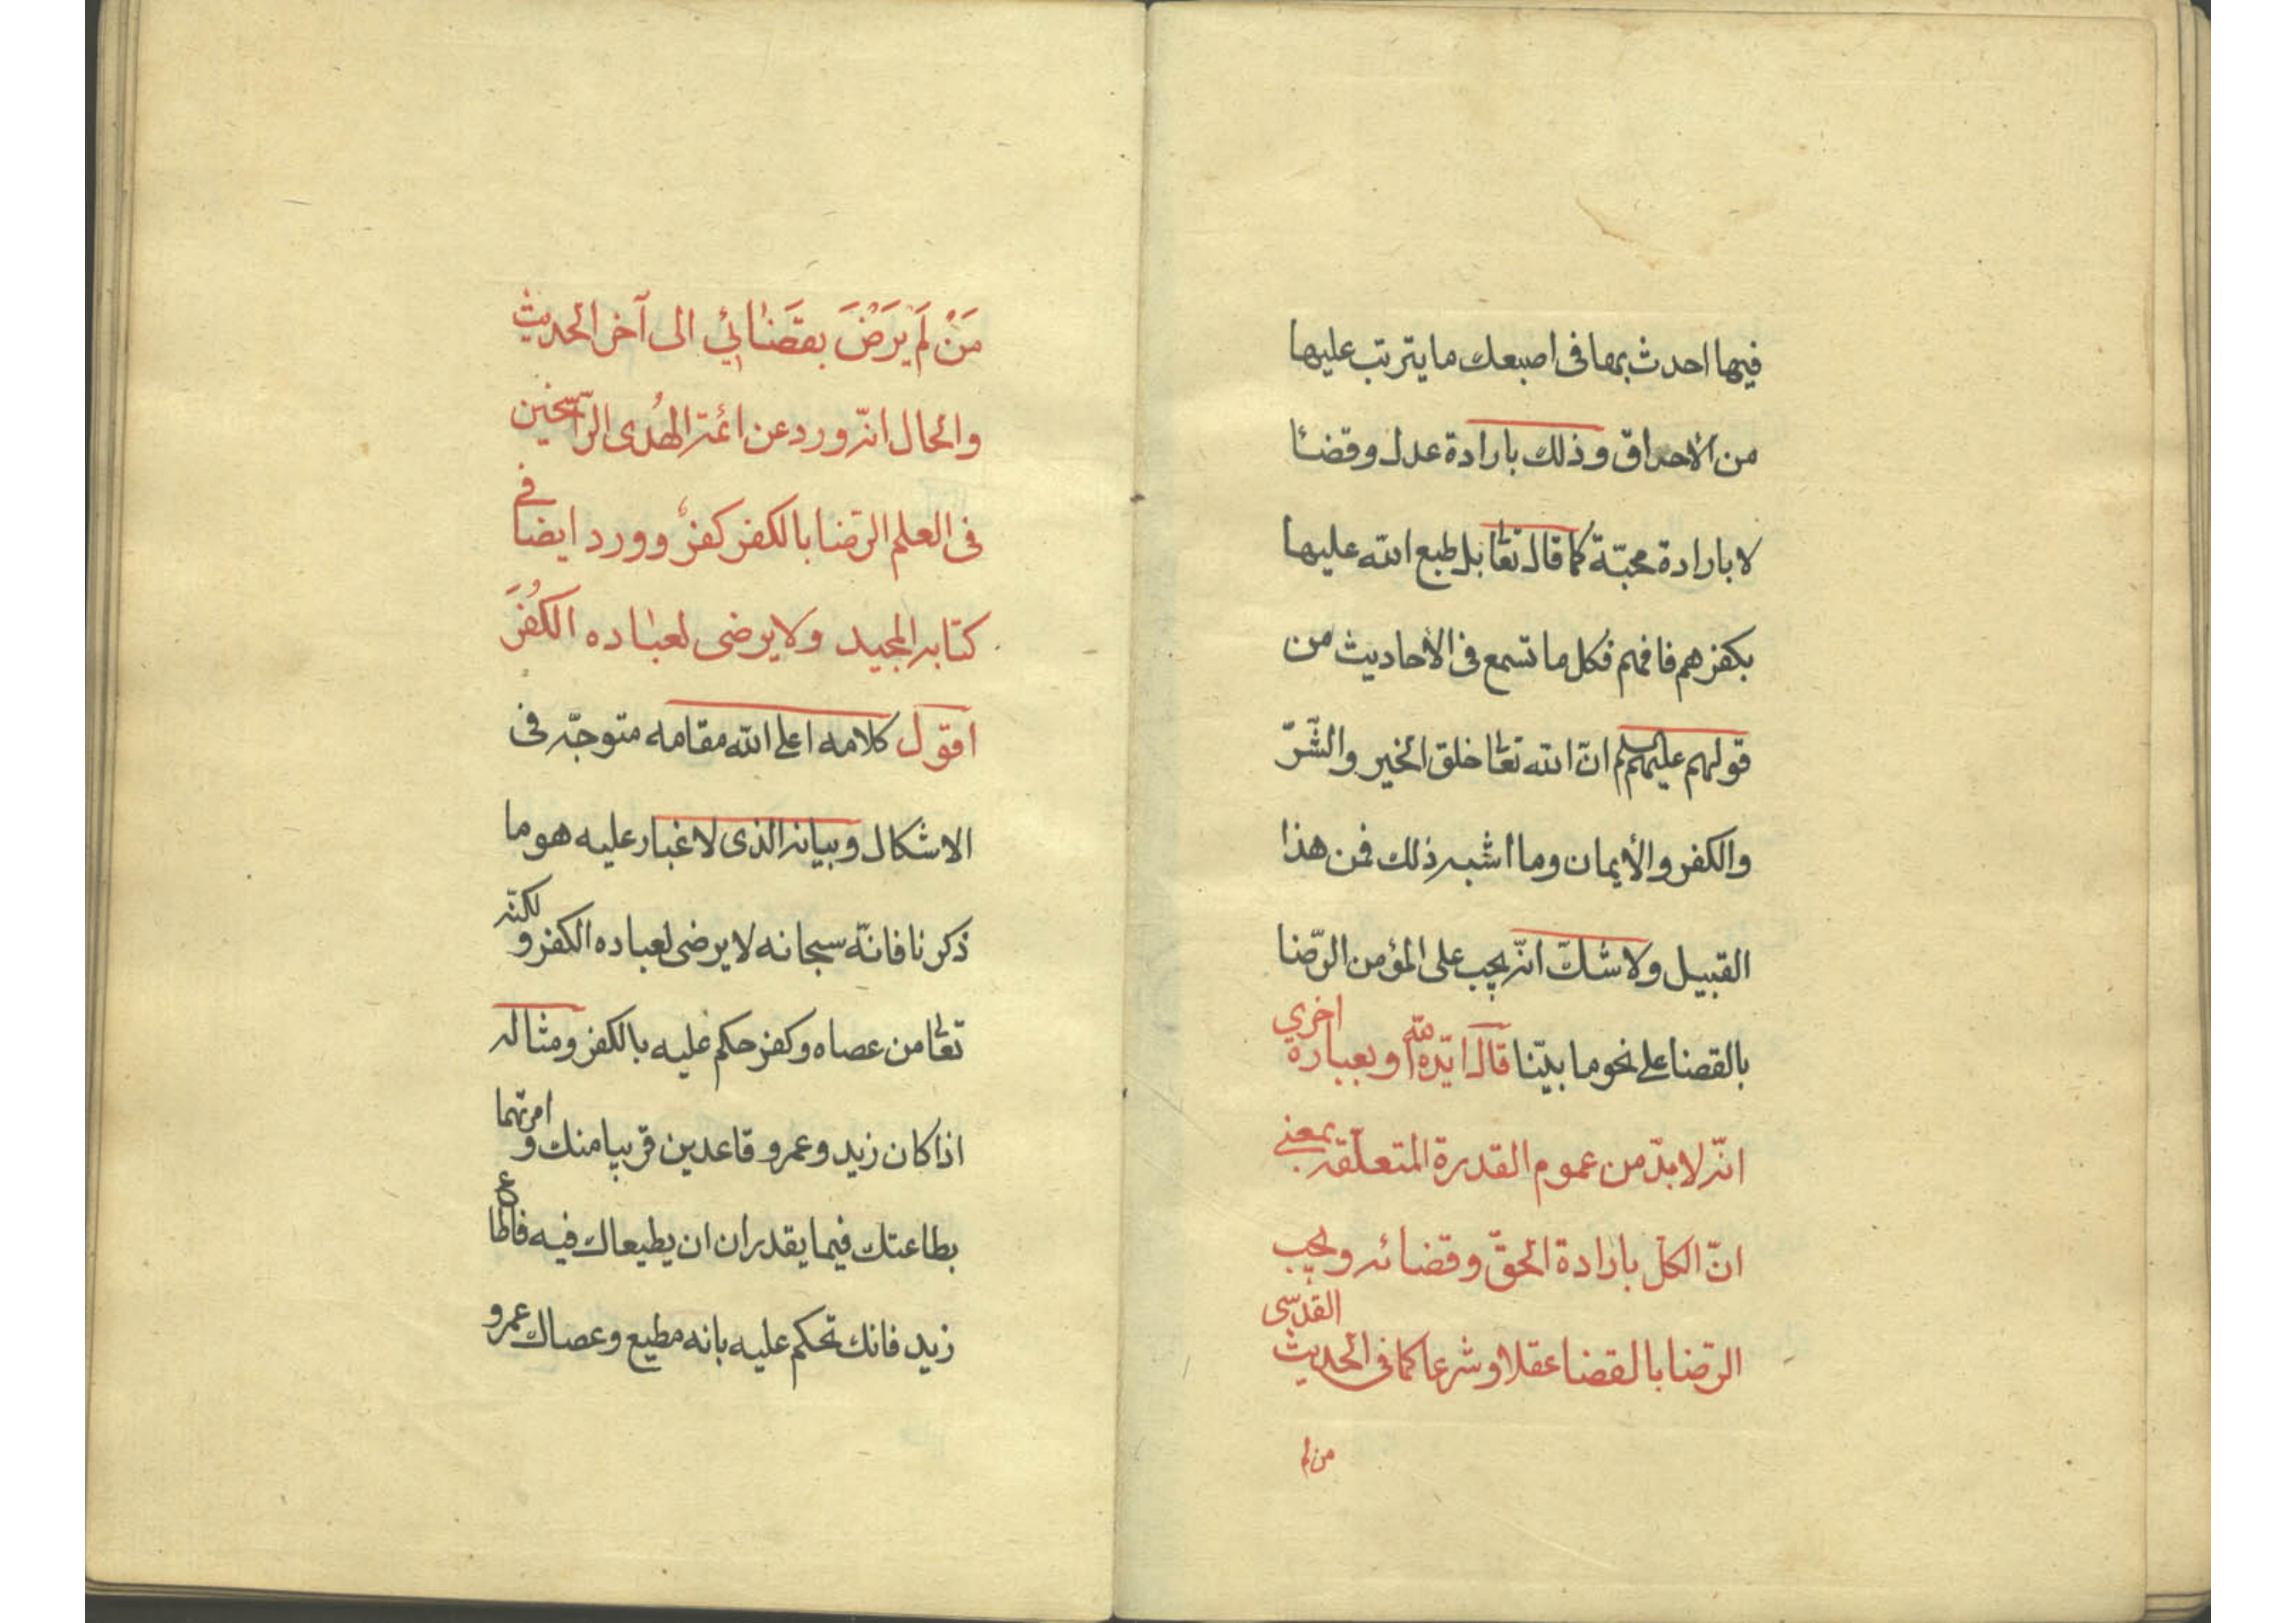 فيها احدث بمها فى اصبعك ما يترتب عليها
من الاحراق وذلك بارادة عدل وقضائا
لا بارادة محبّة كما قال تعا بل طبع الله عليها
بكفرهم فافهم فكل ما تسمع فى الأحاديث من
قولهم عليهم السلم انّ الله تعا خلق الخير والشّرّ
والكفر والأيمان وما اشبه ذلك فمن هذا
القبيل ولا شكّ انّه يجب على المؤمن الرّضا
بالقضا على نحو ما بيّنا قال ايّده الله وبعبارة اخرى
انّه لا بدّ من عموم القدرة المتعلّقة بمعنى
انّ الكلّ بارادة الحقّ وقضائه ويجب
الرّضا بالقضا عقلا وشرعا كما فى الحديث القدسّى
من لم
مَنْ لَمْ يَرْضَ بِقَضَائِي الى آخر الحديث
والحال انّه ورد عن ائمّة الهُدى الرّاسخين
فى العلم الرّضا بالكفر كفرٌ وورد ايضا فى
كتابه المجيد ولا يرضى لعباده الكُفْرَ
اقول كلامه اعلى الله مقامه متوجّه فى
الاشكال وبيانه الذى لا غبار عليه هو ما
ذكرنا فانّه سبحانه لا يرضى لعباده الكفر ولكنّه
تعا من عصاه وكفر حكم عليه بالكفر ومثاله
اذا كان زيد وعمرو قاعدين قريبا منك وامرتهما
بطاعتك فيما يقدران ان يطيعاك فيه فاطاع
زيد فانك تحكم عليه بانه مطيع وعصاك عمرو